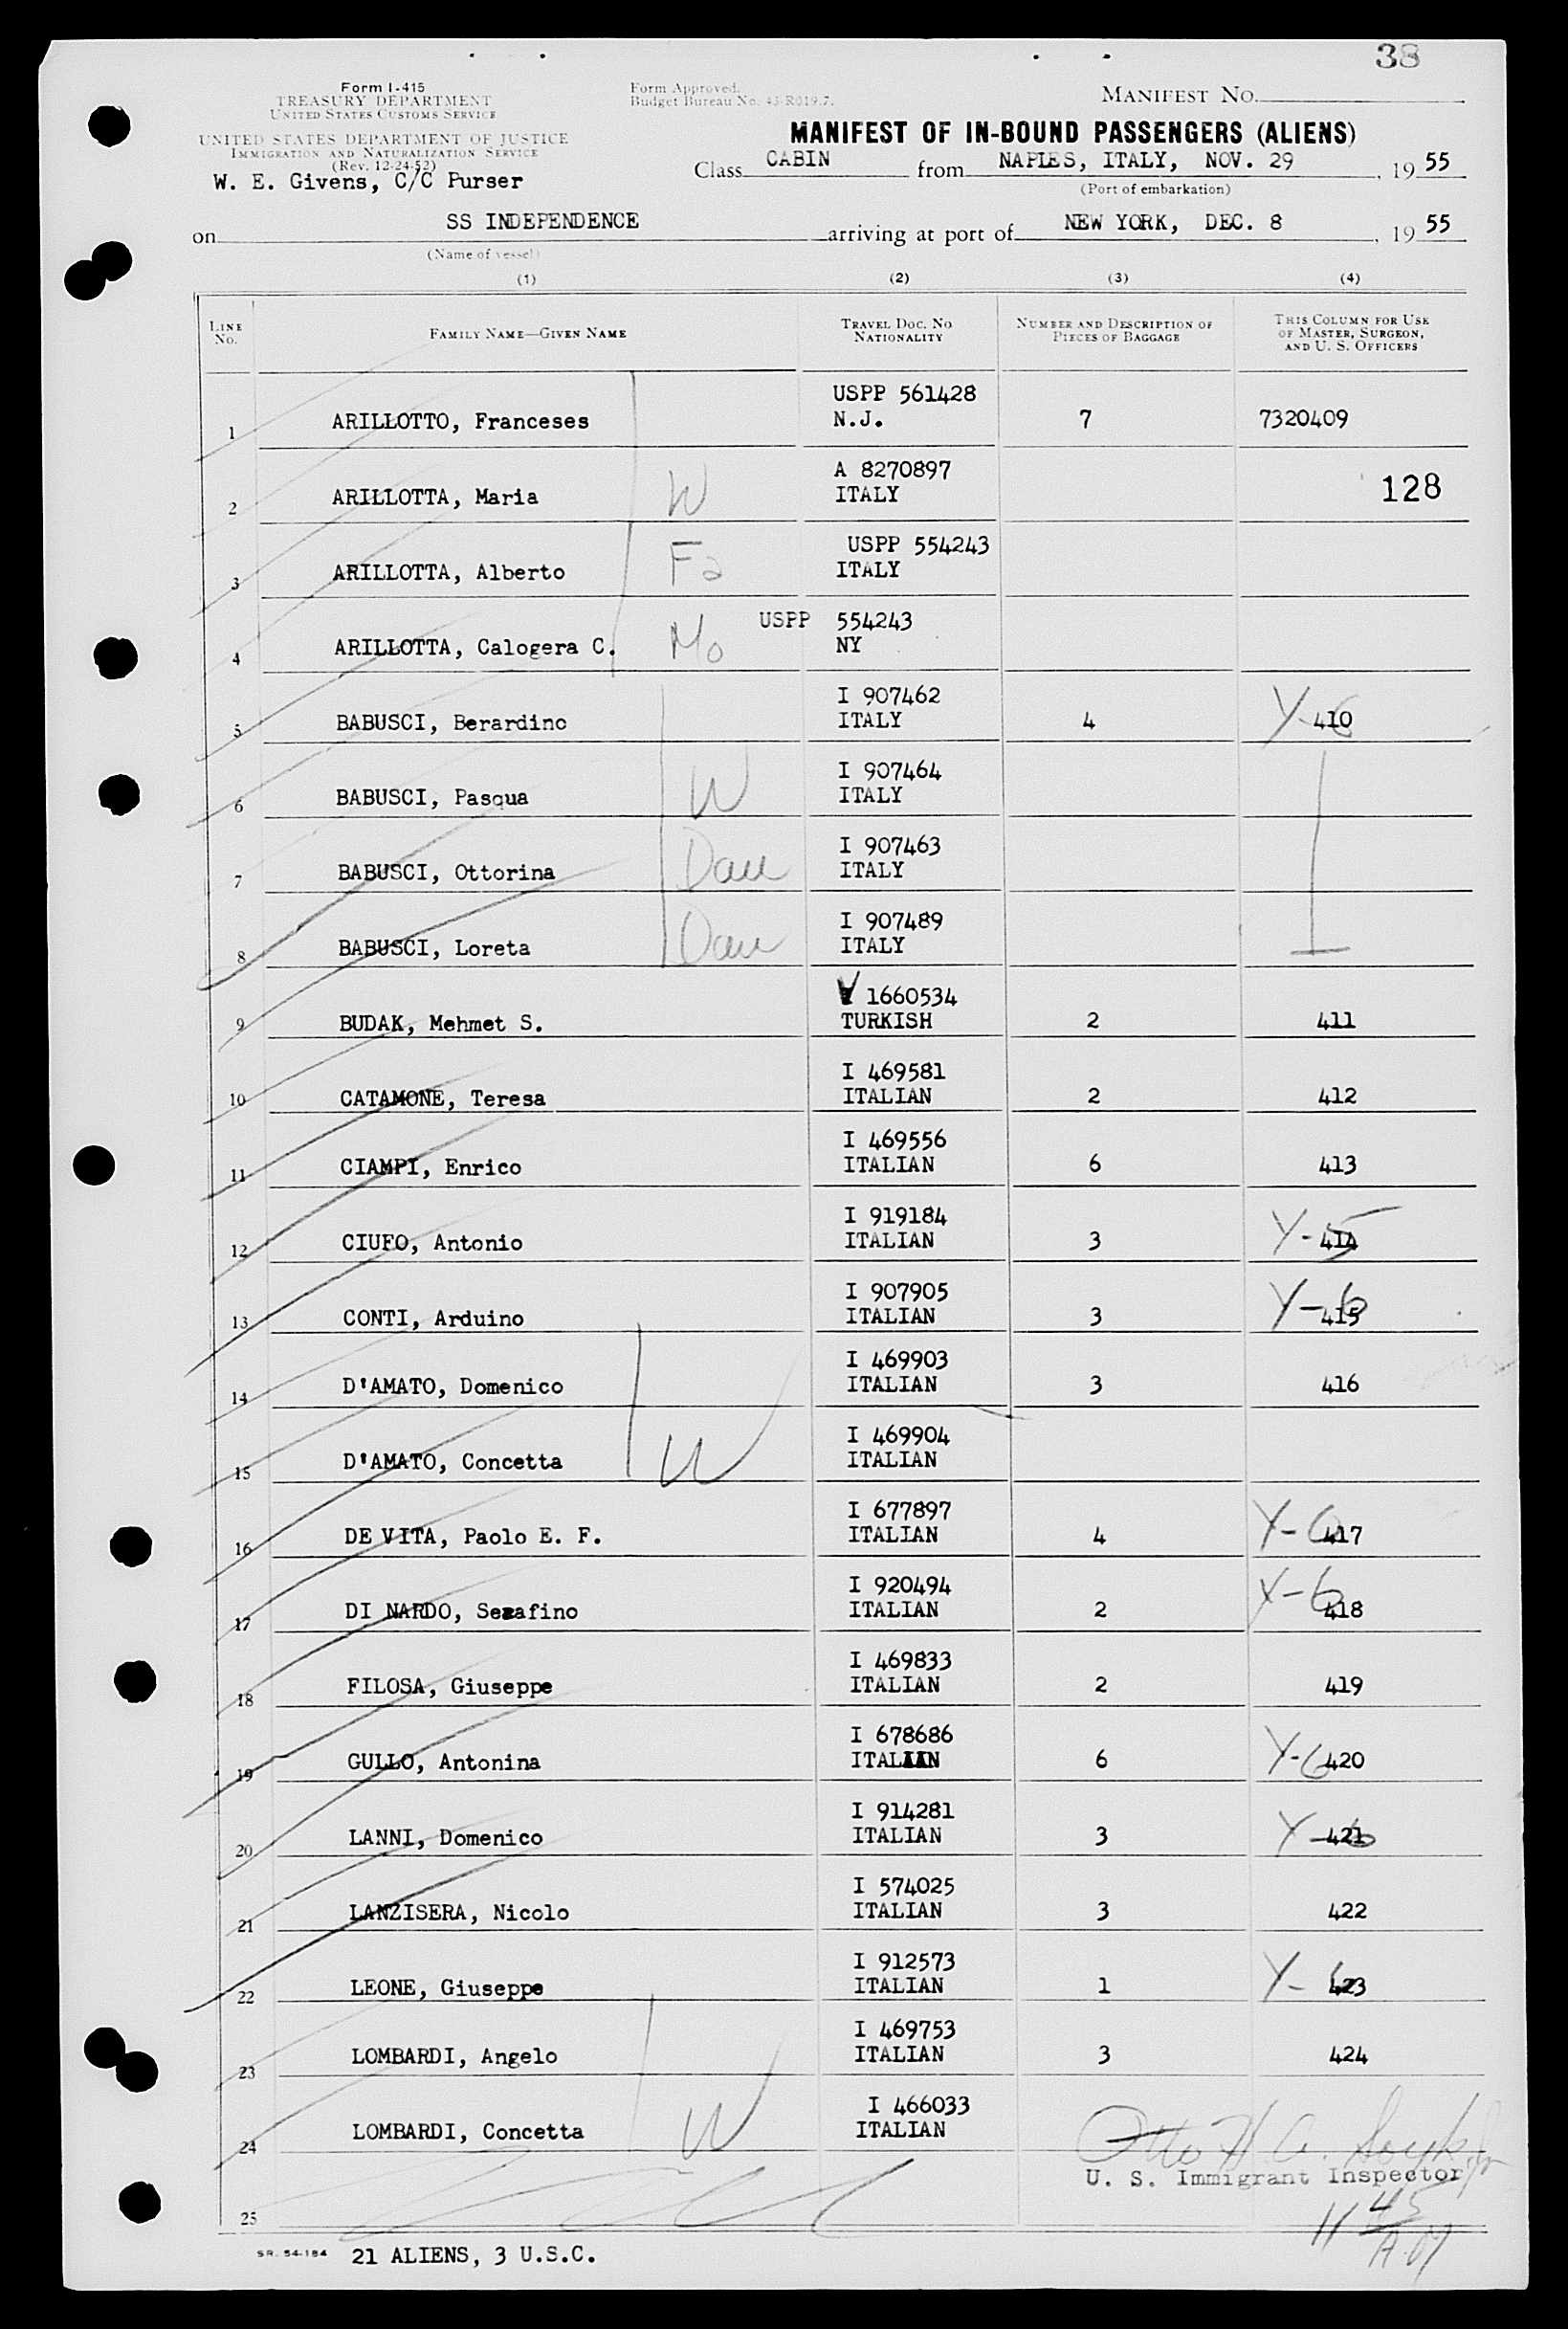 38
Form I-415
TREASURY DEPARTMENT
UNITED STATES CUSTOMS SERVICE
UNITED STATES DEPARTMENT OF JUSTICE
IMMIGRATION AND NATURALIZATION SERVICE
(Rev. 12-24-52)
W. E. Givens, C/C Purser
Form Approved.
Budget Bureau No. 43-R019.7.
MANIFEST NO.
MANIFEST OF IN-BOUND PASSENGERS (ALIENS)
Class CABIN from NAPLES, ITALY, NOV. 29, 19 55
(Port of embarkation)
on SS INDEPENDENCE arriving at port of NEW YORK, DEC. 8, 19 55
(Name of vessel)
(1) (2) (3) (4)
LINE NO. FAMILY NAME—GIVEN NAME TRAVEL DOC. NO NATIONALITY NUMBER AND DESCRIPTION OF PIECES OF BAGGAGE THIS COLUMN FOR USE OF MASTER, SURGEON, AND U. S. OFFICERS
USPP 561428
1 ARILLOTTO, Franceses N.J. 7 7320409
A 8270897
2 ARILLOTTA, Maria W ITALY 128
USPP 554243
3 ARILLOTTA, Alberto Fa ITALY
USPP 554243
4 ARILLOTTA, Calogera C. Mo NY
I 907462
5 BABUSCI, Berardino ITALY 4 Y-6 410
I 907464
6 BABUSCI, Pasqua W ITALY
I 907463
7 BABUSCI, Ottorina Dau ITALY
I 907489
8 BABUSCI, Loreta Dau ITALY
V 1660534
9 BUDAK, Mehmet S. TURKISH 2 411
I 469581
10 CATAMONE, Teresa ITALIAN 2 412
I 469556
11 CIAMPI, Enrico ITALIAN 6 413
I 919184
12 CIUFO, Antonio ITALIAN 3 Y-5 414
I 907905
13 CONTI, Arduino ITALIAN 3 Y-6 415
I 469903
14 D'AMATO, Domenico ITALIAN 3 416
I 469904
15 D'AMATO, Concetta W ITALIAN
I 677897
16 DE VITA, Paolo E. F. ITALIAN 4 Y-6 417
I 920494
17 DI NARDO, Serafino ITALIAN 2 Y-6 418
I 469833
18 FILOSA, Giuseppe ITALIAN 2 419
I 678686
19 GULLO, Antonina ITALIAN 6 Y-6 420
I 914281
20 LANNI, Domenico ITALIAN 3 Y-6 421
I 574025
21 LANZISERA, Nicolo ITALIAN 3 422
I 912573
22 LEONE, Giuseppe ITALIAN 1 Y-6 423
I 469753
23 LOMBARDI, Angelo ITALIAN 3 424
I 466033
24 LOMBARDI, Concetta W ITALIAN
Otto H. A.
U. S. Immigrant Inspector
25
11 45
A.M
SR. 54-184 21 ALIENS, 3 U.S.C.